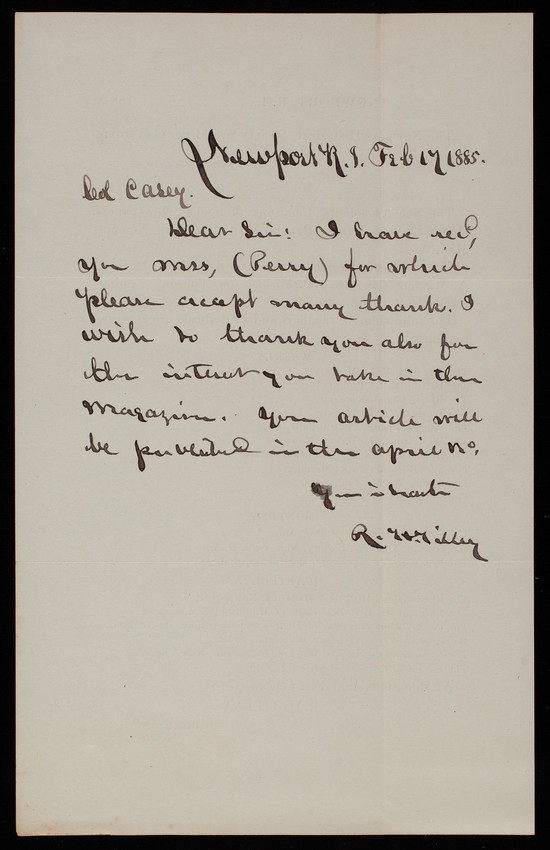 Newport R. I. Feb 17 1885.
Col Casey.
Dear Sir: I have recd,
you mss, (Perry) for which
please accept many thank. I
wish to thank you also for
the interest you take in the
Magazine. Your article will
be published in the april No.
Yours truly
R. H. Tilley